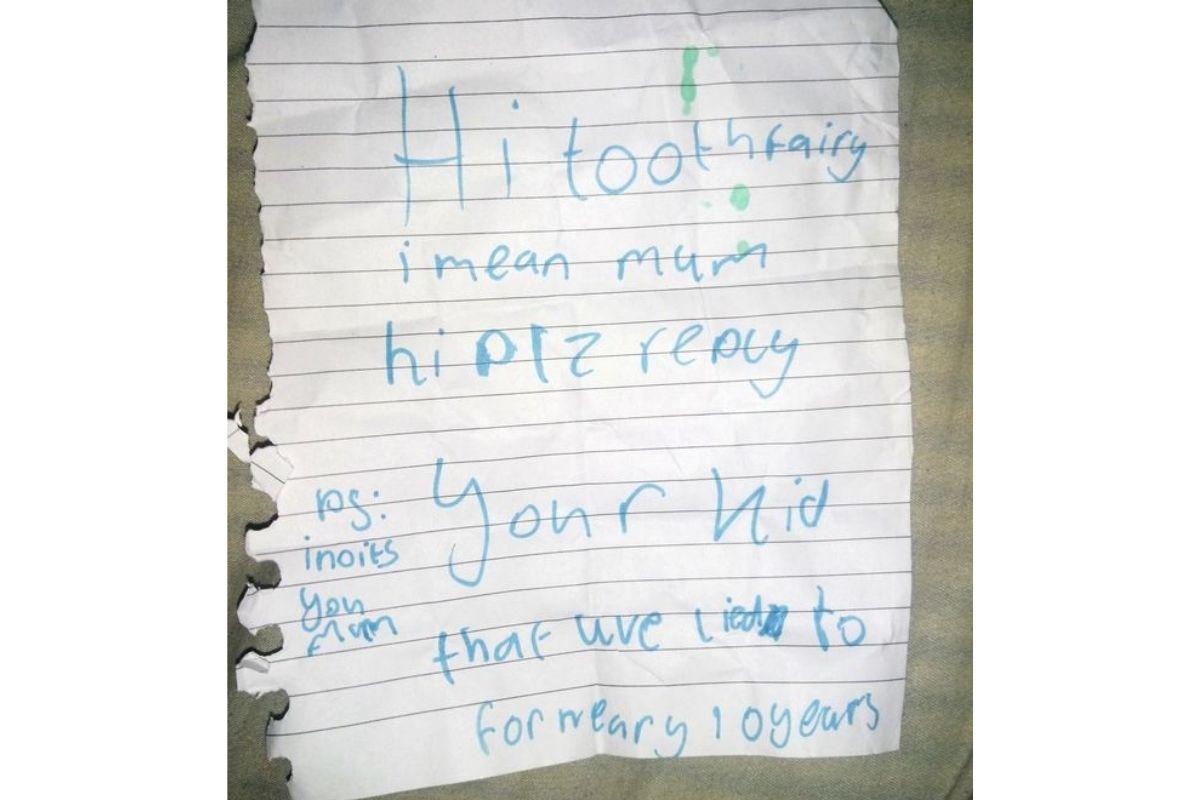 Hi toothfairy
i mean mum
hi plz reply
your kid
that uve lied to
for neary 10 years
ps:
inoits
you
mum